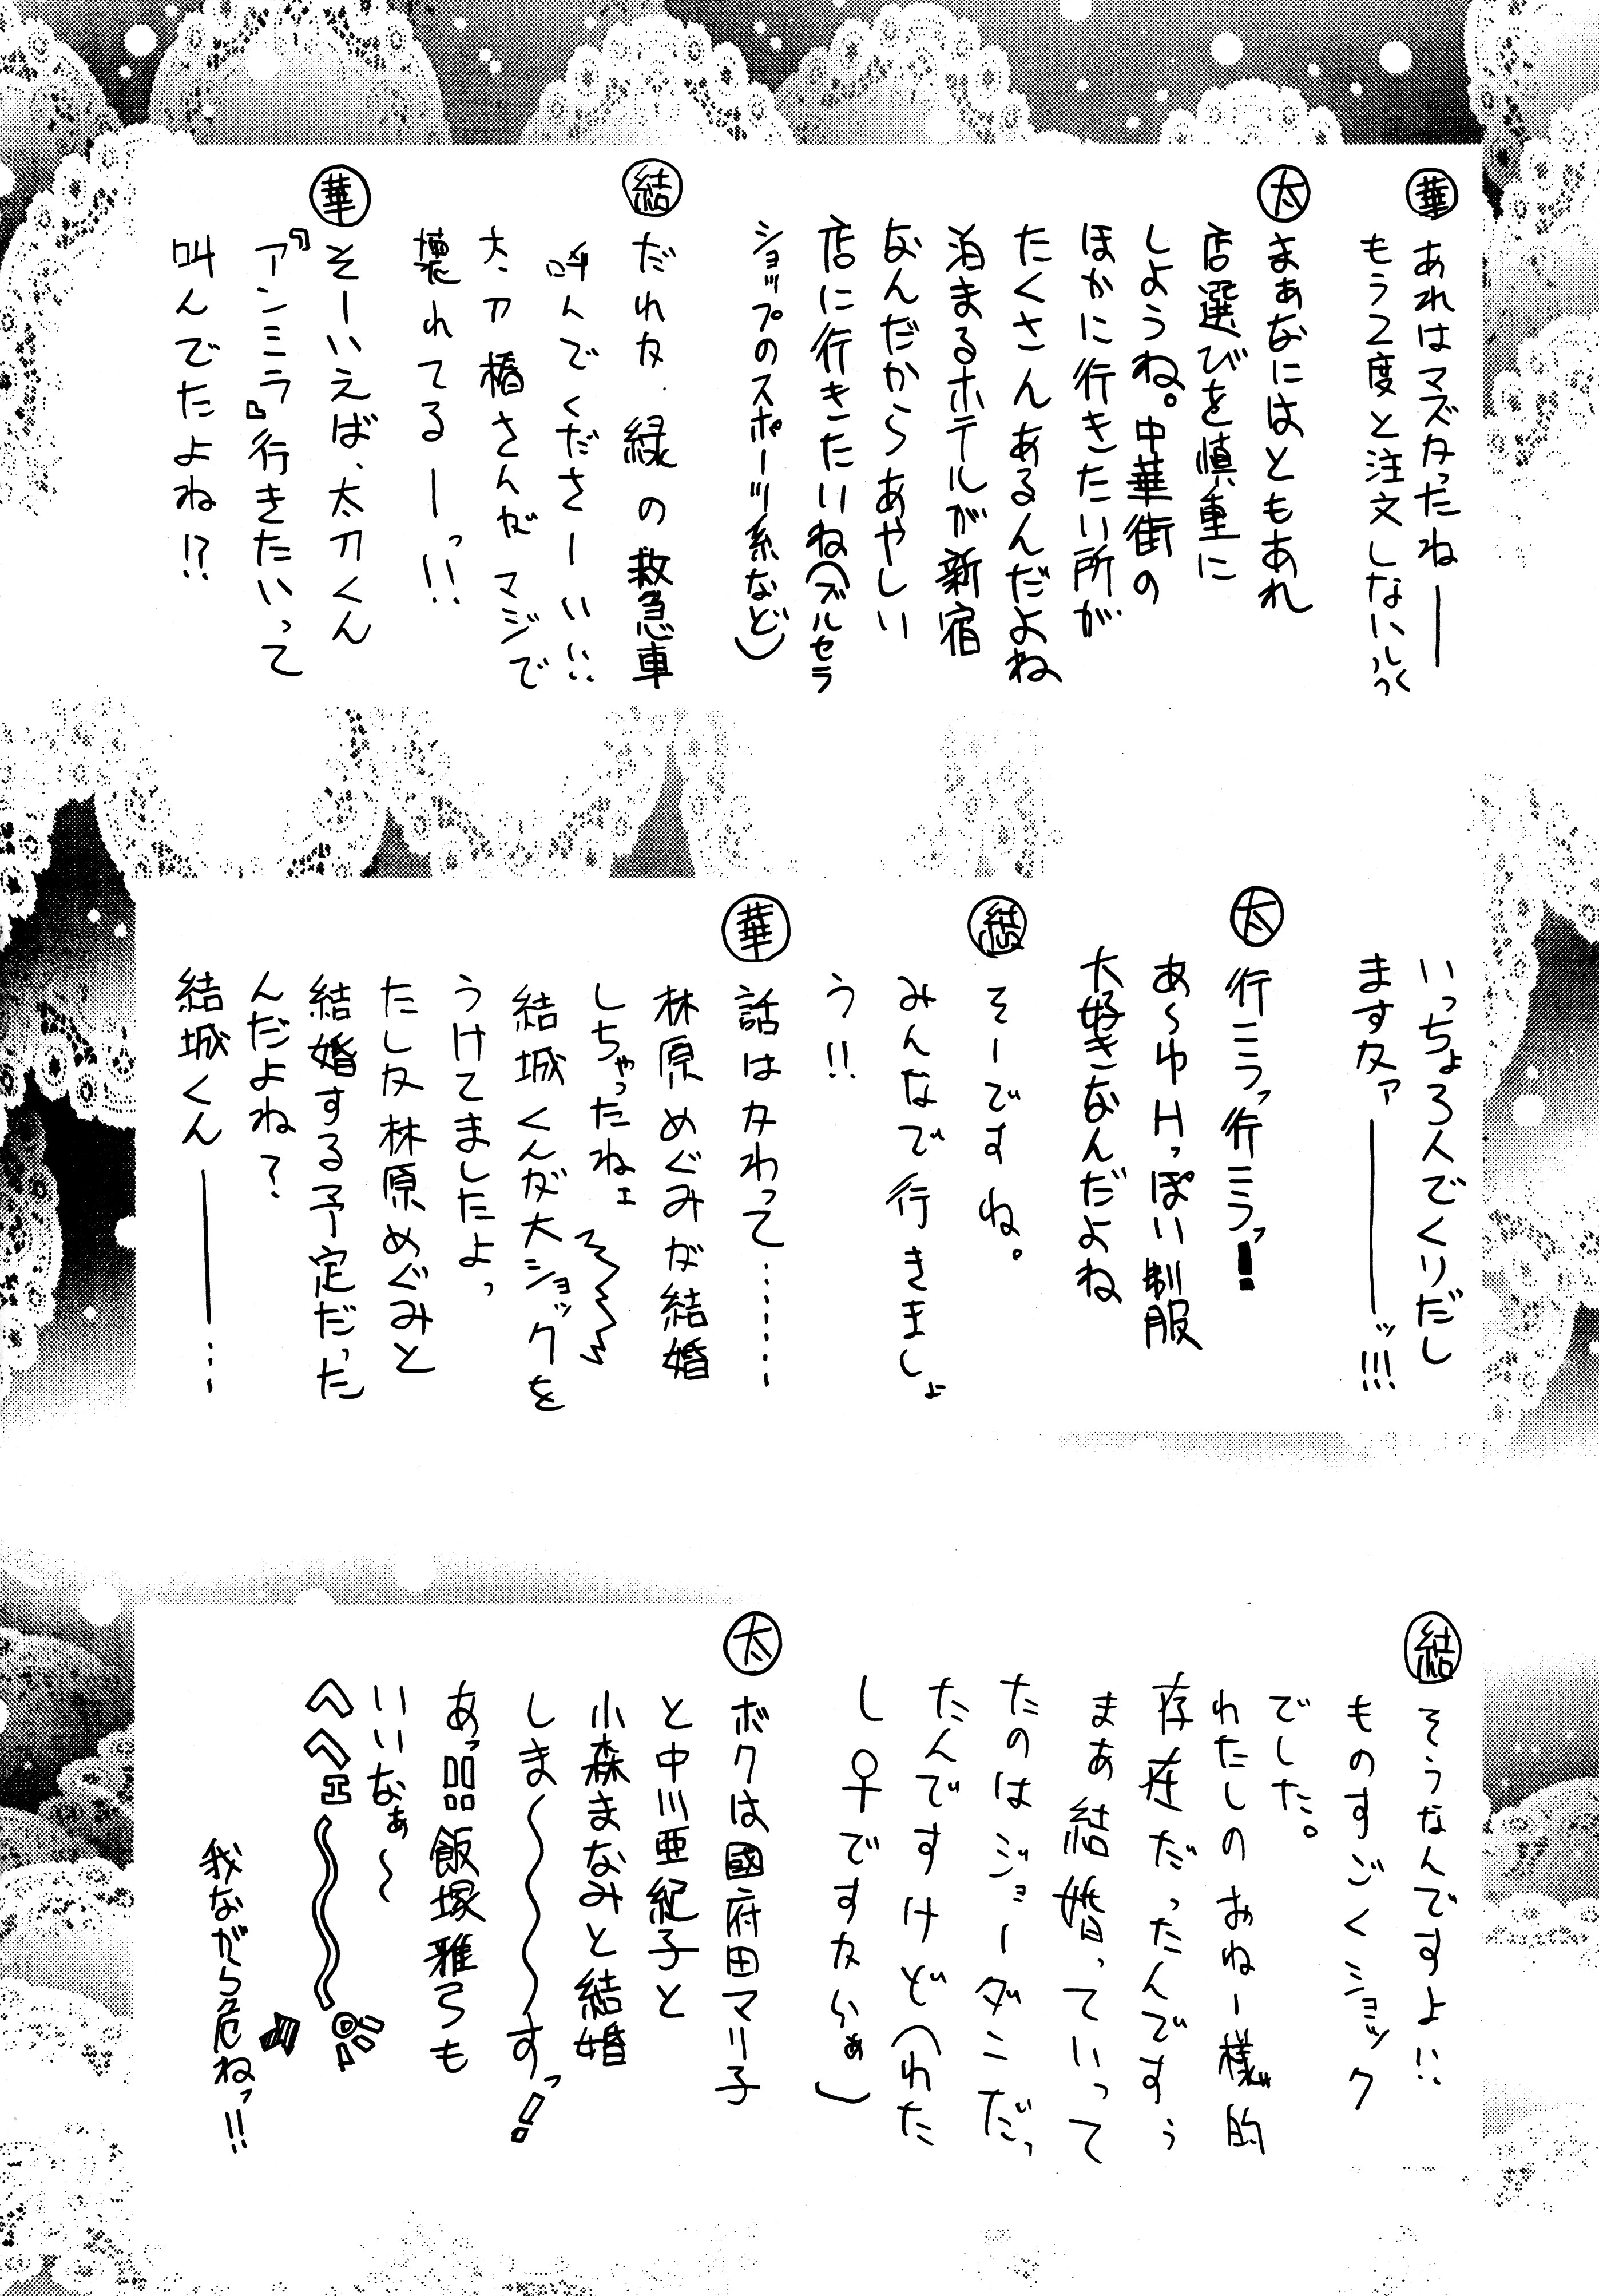 華 あれはマズかったねー
もう2度と注文しないルっく
太 まぁなにはともあれ
店選びを慎重に
しようね。中華街の
ほかに行きたい所が
たくさんあるんだよね
泊まるホテルが新宿
なんだからあやしい
店に行きたいね(ブルセラ
ショップのスポーツ系など)
結 だれか緑の救急車
呼んでくださーい!!
太刀橋さんが マジで
壊れてるーっ!!
華 そーいえば、太刀くん
『アンミラ』行きたいって
叫んでたよね!?
いっちょ3人でくりだし
ますかァーッ!!!
太 行こうっ行こうっ!
あ〜ゆHっぽい制服
大好きなんだよね
結 そーですね。
みんなで行きましょ
う!!
華 話はかわって………
林原めぐみが結婚
しちゃったねェ
結城くんが大ショックを
うけてましたよっ
たしか林原めぐみと
結婚する予定だった
んだよね?
結城くんー…
結 そうなんですよ!!
ものすごくショック
でした。
わたしのおねー様的
存在だったんですぅ
まぁ結婚っていって
たのはジョーダンだっ
たんですけど(わた
し♀ですからぁ)
太 ボクは國府田マリ子
と中川亜紀子と
小森まなみと結婚
しま〜〜すっ!
あっ!!飯塚雅弓も
いいなぁ〜
へへェ〜〜
我ながら危ねっ!!